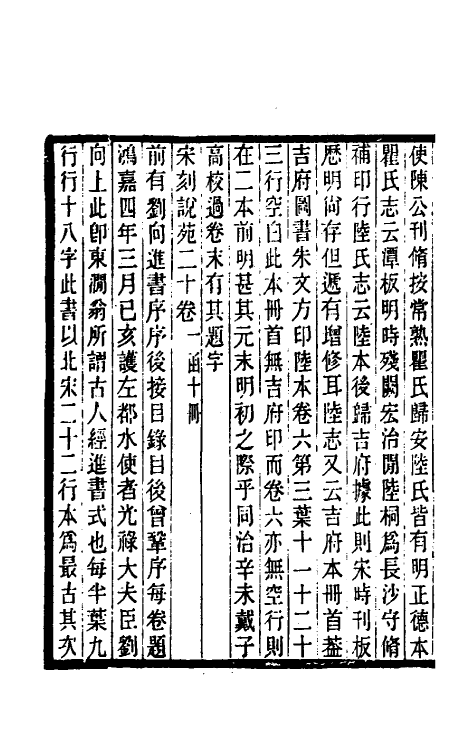 使陳公刊脩按常熟瞿氏歸安陸氏皆有明正德本
瞿氏志云潭板明時殘闕宏治閒陸桐爲長沙守脩
補印行陸氏志云陸本後歸吉府據此則宋時刊板
歷明尙存但遞有增修耳陸志又云吉府本冊首葢
吉府圖書朱文方印陸本卷六第三葉十一十二十
三行空白此本冊首無吉府印而卷六亦無空行則
在二本前明甚其元末明初之際乎同治辛未戴子
高校過卷末有其題字
宋刻說苑二十卷一函十冊
前有劉向進書序序後接目錄目後曾鞏序每卷題
鴻嘉四年三月己亥護左都水使者光祿大夫臣劉
向上此卽東澗翁所謂古人經進書式也每半葉九
行行十八字此書以北宋二十二行本爲最古其次